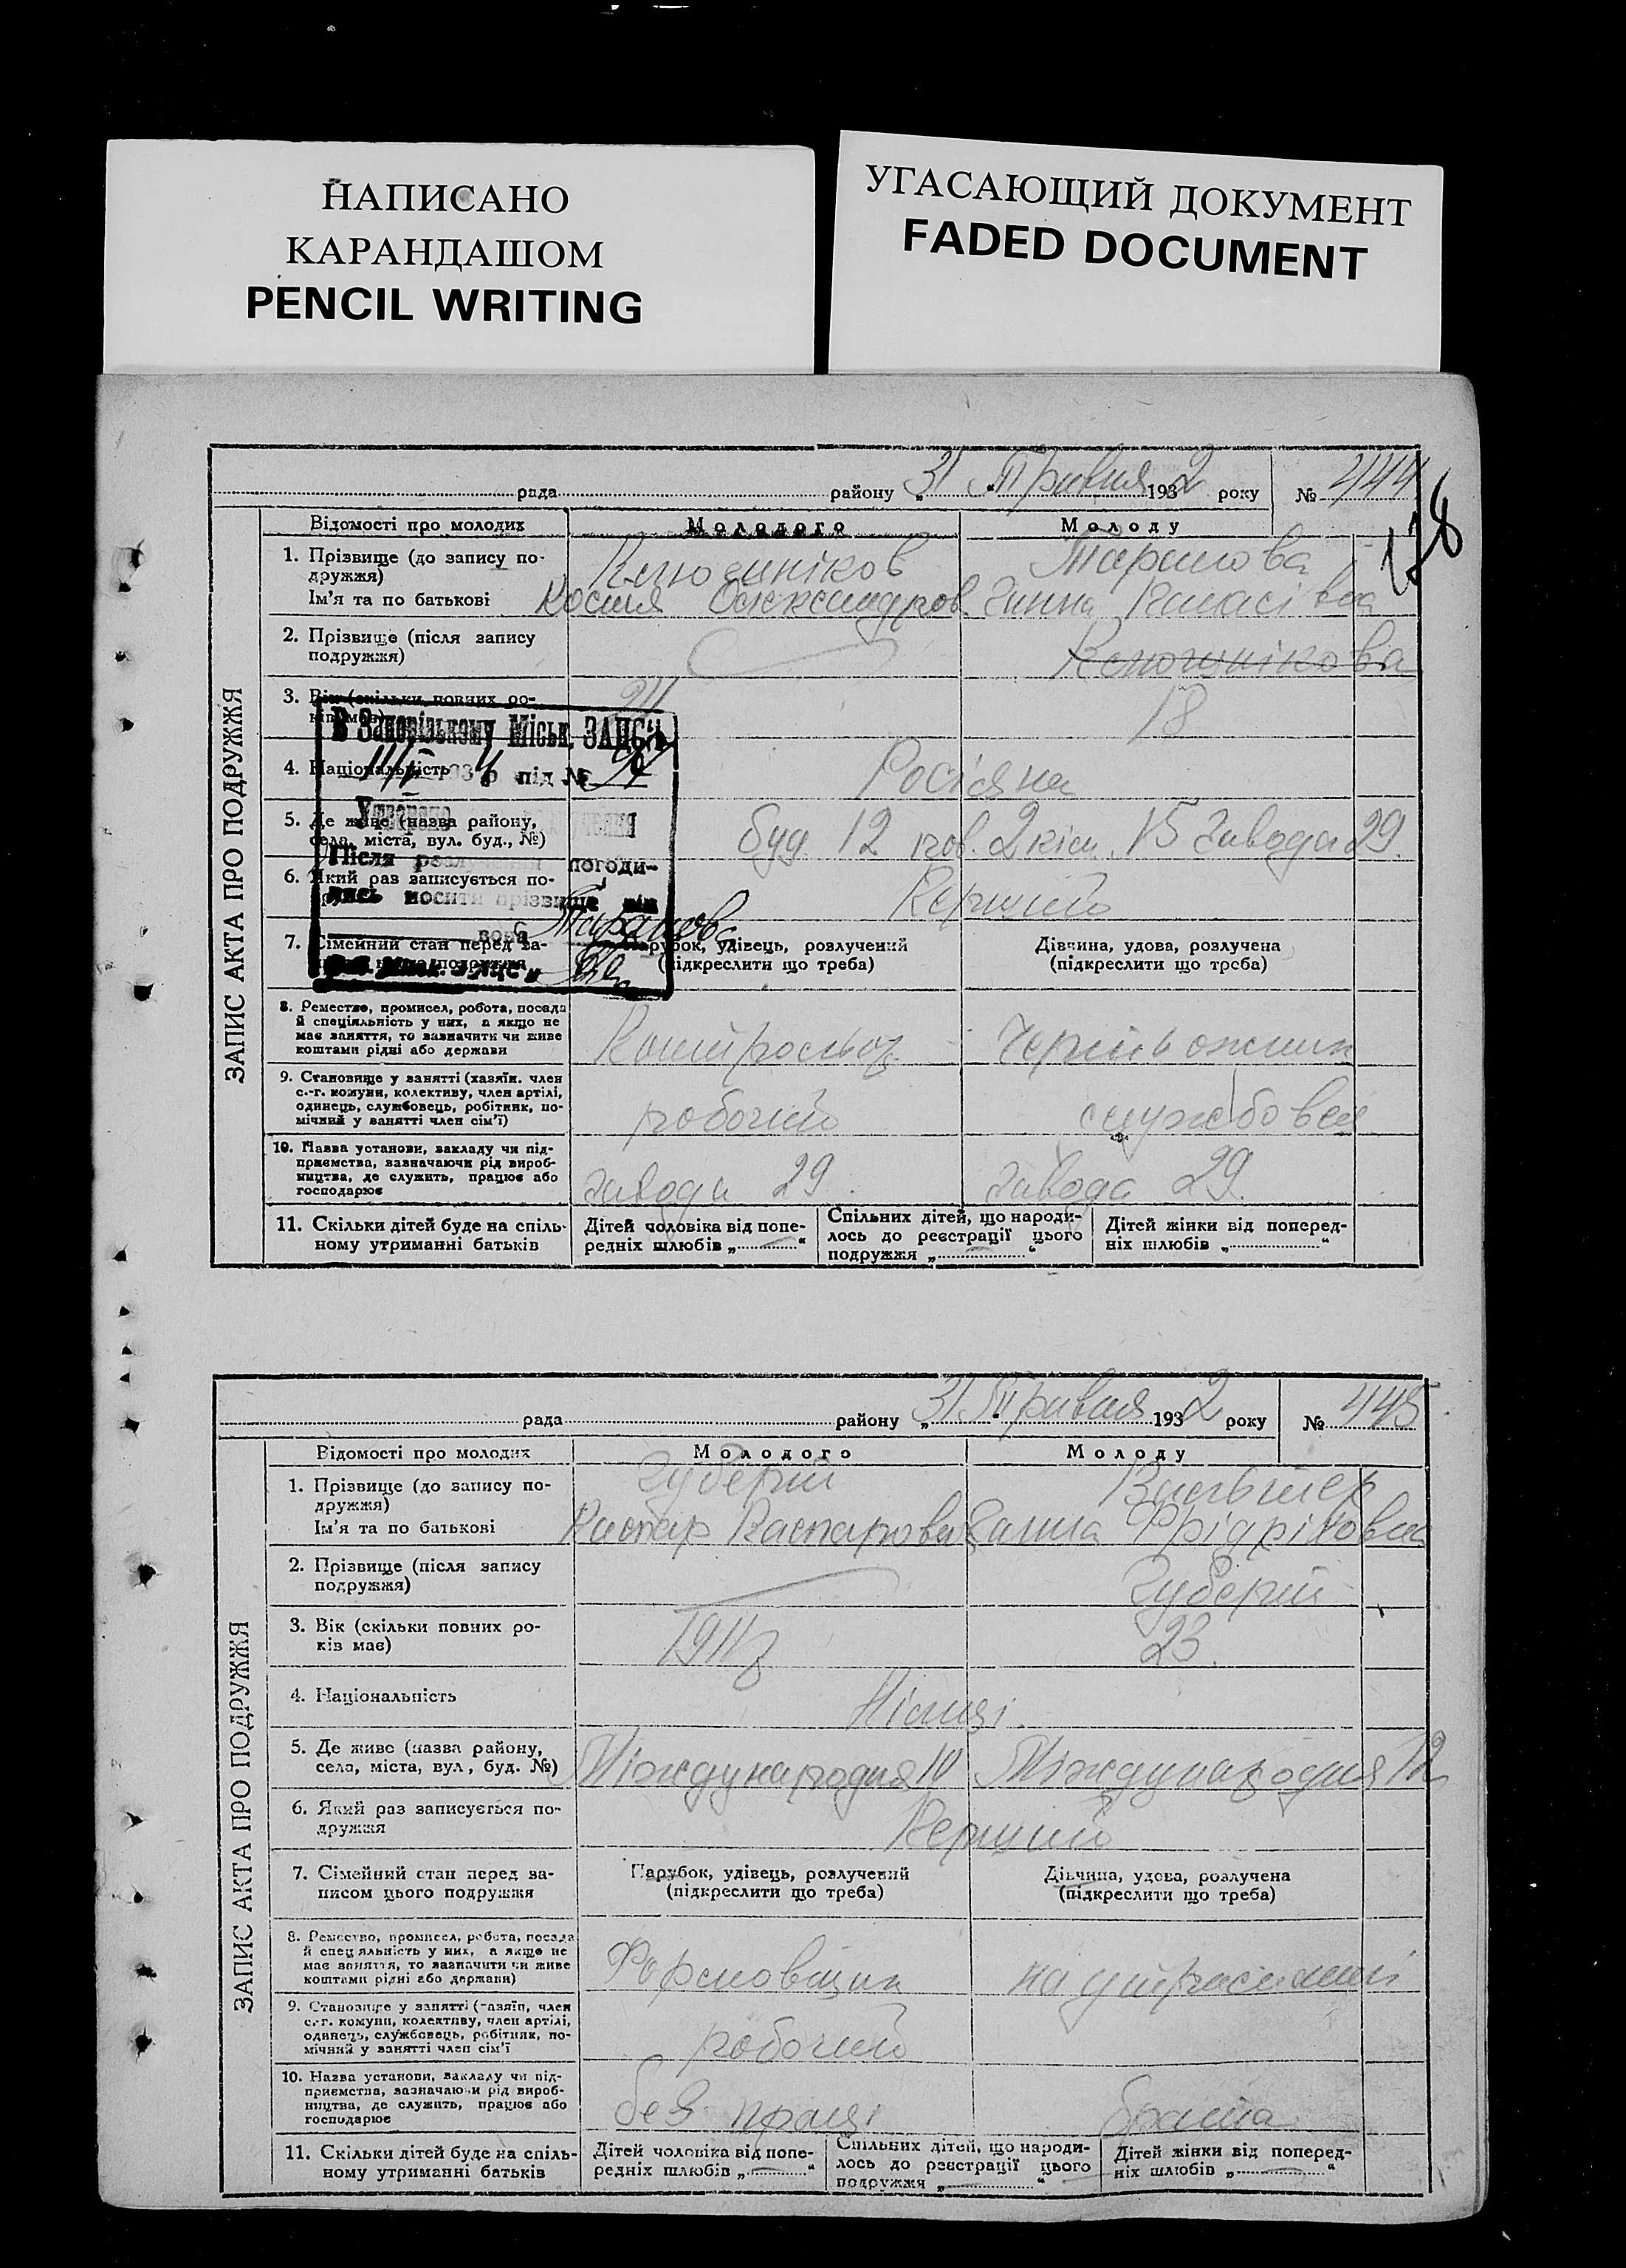 НАПИСАНО
КАРАНДАШОМ
PENCIL WRITING
УГАСАЮЩИЙ ДОКУМЕНТ
FADED DOCUMENT
рада району „31 Травня 1932 року № 444
178
ЗАПИС АКТА ПРО ПОДРУЖЖЯ
Відомості про молодих Молодого Молоду
1. Прізвище (до запису по-
дружжя)
Ім'я та по батькові
Костя Олександров. Ганна
2. Прізвище (після запису
подружжя)
3. Вік (скільки повних ро-
ків має)
24 18
4. Національність
Росіяне
5. Де живе (назва району,
села, міста, вул. буд., №)
буд. 12 пов. 2 кім. 15 Завода 29.
6. Який раз записується по-
Перший
7. Сімейний стан перед за-
писом цього подружжя
Парубок, удівець, розлучений
(підкреслити що треба)
Дівчина, удова, розлучена
(підкреслити що треба)
В Запорізькому Міськ. ЗАЦСі
193 під №
Після розлучення погоди-
лись носити прізвище він
вона
8. Ремество, промисел, робота, посада
й спеціяльність у них, а якщо не
має заняття, то зазначити чи живе
коштами рідні або держави
Контрольор
9. Становище у занятті (хазяїн, член
с.-г. комуни, колективу, член артілі,
одинець, службовець, робітник, по-
мічний у занятті член сім'ї)
робочий службовец
10. Назва установи, закладу чи під-
приємства, зазначаючи рід вироб-
ництва, де служить, працює або
господарює
завода 29. завода 29.
11. Скільки дітей буде на спіль-
ному утриманні батьків
Дітей чоловіка від попе-
редніх шлюбів „ — “
Спільних дітей, що народи-
лось до реєстрації цього
подружжя „ — “
Дітей жінки від поперед-
ніх шлюбів „ “
рада району „31 Травня 1932 року № 445
ЗАПИС АКТА ПРО ПОДРУЖЖЯ
Відомості про молодих Молодого Молоду
1. Прізвище (до запису по-
дружжя)
Губерт Вальтер
Ім'я та по батькові
Каспар Каспарович Фрідріховна
2. Прізвище (після запису
подружжя)
Губерт
3. Вік (скільки повних ро-
ків має)
23.
4. Національність
Німці
5. Де живе (назва району,
села, міста, вул, буд. №)
Міждународня 10 Міждународня 12
6. Який раз записується по-
дружжя
Перший
7. Сімейний стан перед за-
писом цього подружжя
Парубок, удівець, розлучений
(підкреслити що треба)
Дівчина, удова, розлучена
(підкреслити що треба)
8. Ремество, промисел, робота, посада
й спеціяльність у них, а якщо не
має заняття, то зазначити чи живе
коштами рідні або держави)
Формовщик на утриманні
9. Становище у занятті (хазяїн, член
с.-г. комуни, колективу, член артілі,
одинець, службовець, робітник, по-
мічний у занятті член сім'ї
робочий
10. Назва установи, закладу чи під-
приємства, зазначаючи рід вироб-
ництва, де служить, працює або
господарює
без праці брата
11. Скільки дітей буде на спіль-
ному утриманні батьків
Дітей чоловіка від попе-
редніх шлюбів „ — “
Спільних дітей, що народи-
лось до реєстрації цього
подружжя „ “
Дітей жінки від поперед-
ніх шлюбів „ — “